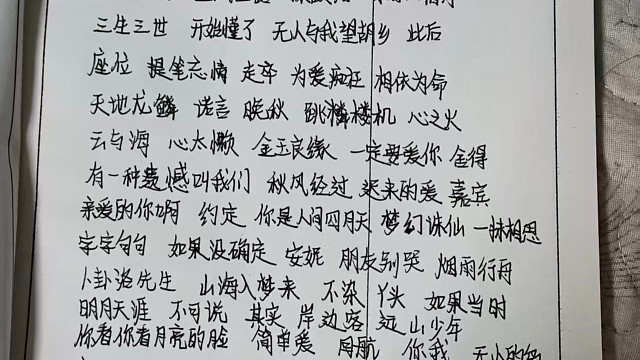 三生三世 开始懂了 无人与我望胡乡 此后
座位 提笔忘情 走卒 为爱痴狂 相依为命
天地龙鳞 诺言 晚秋 跳楼机 心之火
云与海 心太懒 金玉良缘 一定要爱你 舍得
有一种遗憾叫我们 秋风经过 迟来的爱 嘉宾
亲爱的你啊 约定 你是人间四月天 梦幻诛仙 一抹相思
字字句句 如果没确定 安妮 朋友别哭 烟雨行舟
卜卦洛先生 山海入梦来 不染 丫头 如果当时
明月天涯 不可说 其实 岸边客 远山少年
你看你看月亮的脸 简单爱 同航 你我